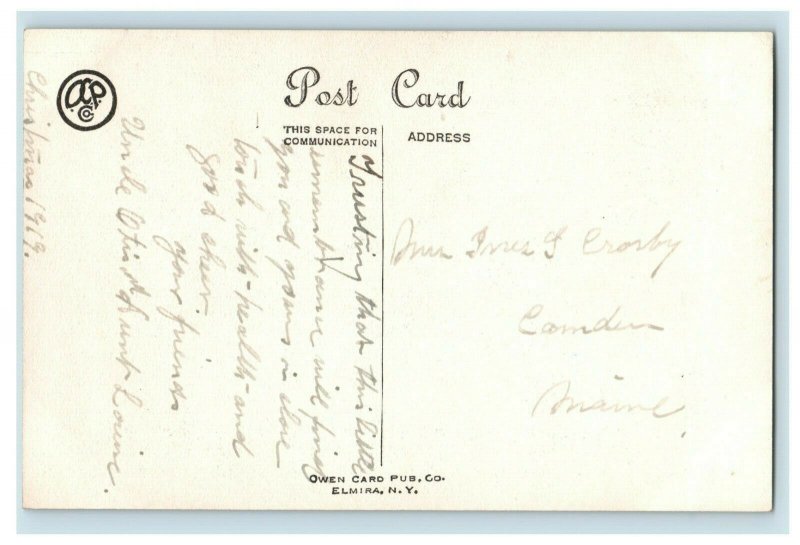 Post Card
THIS SPACE FOR
COMMUNICATION
ADDRESS
Christmas 1919.
Trusting that this little
remembrance will find
you and yours in close
touch with health and
good cheer
your friends
Uncle Otis & Aunt Louise.
Inez Crosby
Camden
Maine
OWEN CARD PUB. CO.
ELMIRA, N.Y.